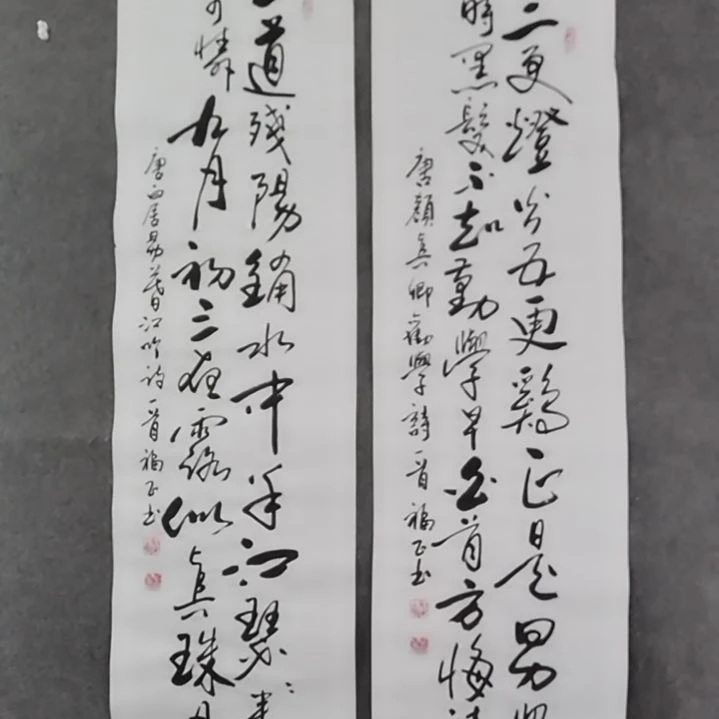 三更燈火五更鷄正是男兒
時黑髮不知勤學早白首方悔讀
唐顏真卿勸學詩一首福正书
一道殘陽鋪水中半江瑟々半
可憐九月初三夜露似真珠月
唐白居易暮江吟詩一首福正书